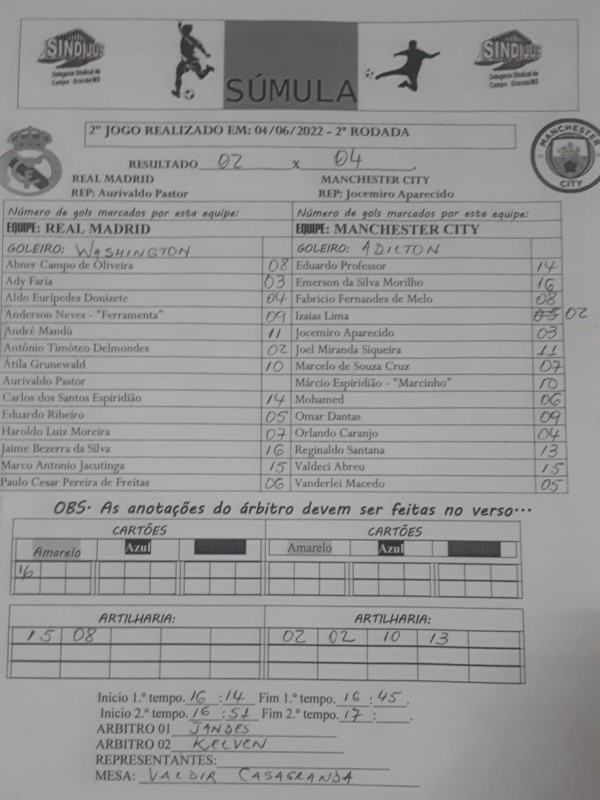 SINDIJUS
Delegacia Sindical de
Campo Grande/MS
SÚMULA
SINDIJUS
Delegacia Sindical de
Campo Grande/MS
2º JOGO REALIZADO EM: 04/06/2022 - 2ª RODADA
RESULTADO 02 X 04
REAL MADRID MANCHESTER CITY
REP: Aurivaldo Pastor REP: Jocemiro Aparecido
MANCHESTER
CITY
Número de gols marcados por esta equipe: Número de gols marcados por esta equipe:
EQUIPE: REAL MADRID EQUIPE: MANCHESTER CITY
GOLEIRO: WASHINGTON GOLEIRO: ADILTON
Abner Campo de Oliveira 08 Eduardo Professor 14
Ady Faria 03 Emerson da Silva Morilho 16
Aldo Eurípedes Donizete 04 Fabricio Fernandes de Melo 08
Anderson Neves - "Ferramenta" 09 Izaias Lima 05 02
André Mandú 11 Jocemiro Aparecido 03
Antônio Timóteo Delmondes 02 Joel Miranda Siqueira 11
Átila Grunewald 10 Marcelo de Souza Cruz 07
Aurivaldo Pastor Márcio Espiridião - "Marcinho" 10
Carlos dos Santos Espiridião 14 Mohamed 06
Eduardo Ribeiro 05 Omar Dantas 09
Haroldo Luiz Moreira 07 Orlando Caranjo 04
Jaime Bezerra da Silva 16 Reginaldo Santana 13
Marco Antonio Jacutinga 15 Valdeci Abreu 15
Paulo Cesar Pereira de Freitas 06 Vanderlei Macedo 05
OBS. As anotações do árbitro devem ser feitas no verso...
CARTÕES CARTÕES
Amarelo Azul Amarelo Azul
16
ARTILHARIA: ARTILHARIA:
15 08 02 02 10 13
Inicio 1.º tempo. 16 : 14 Fim 1.º tempo. 16 : 45.
Inicio 2.º tempo. 16 : 51 Fim 2.º tempo. 17 : .
ARBITRO 01 JANDES
ARBITRO 02 KELVEN
REPRESENTANTES:
MESA: VALDIR CASAGRANDA